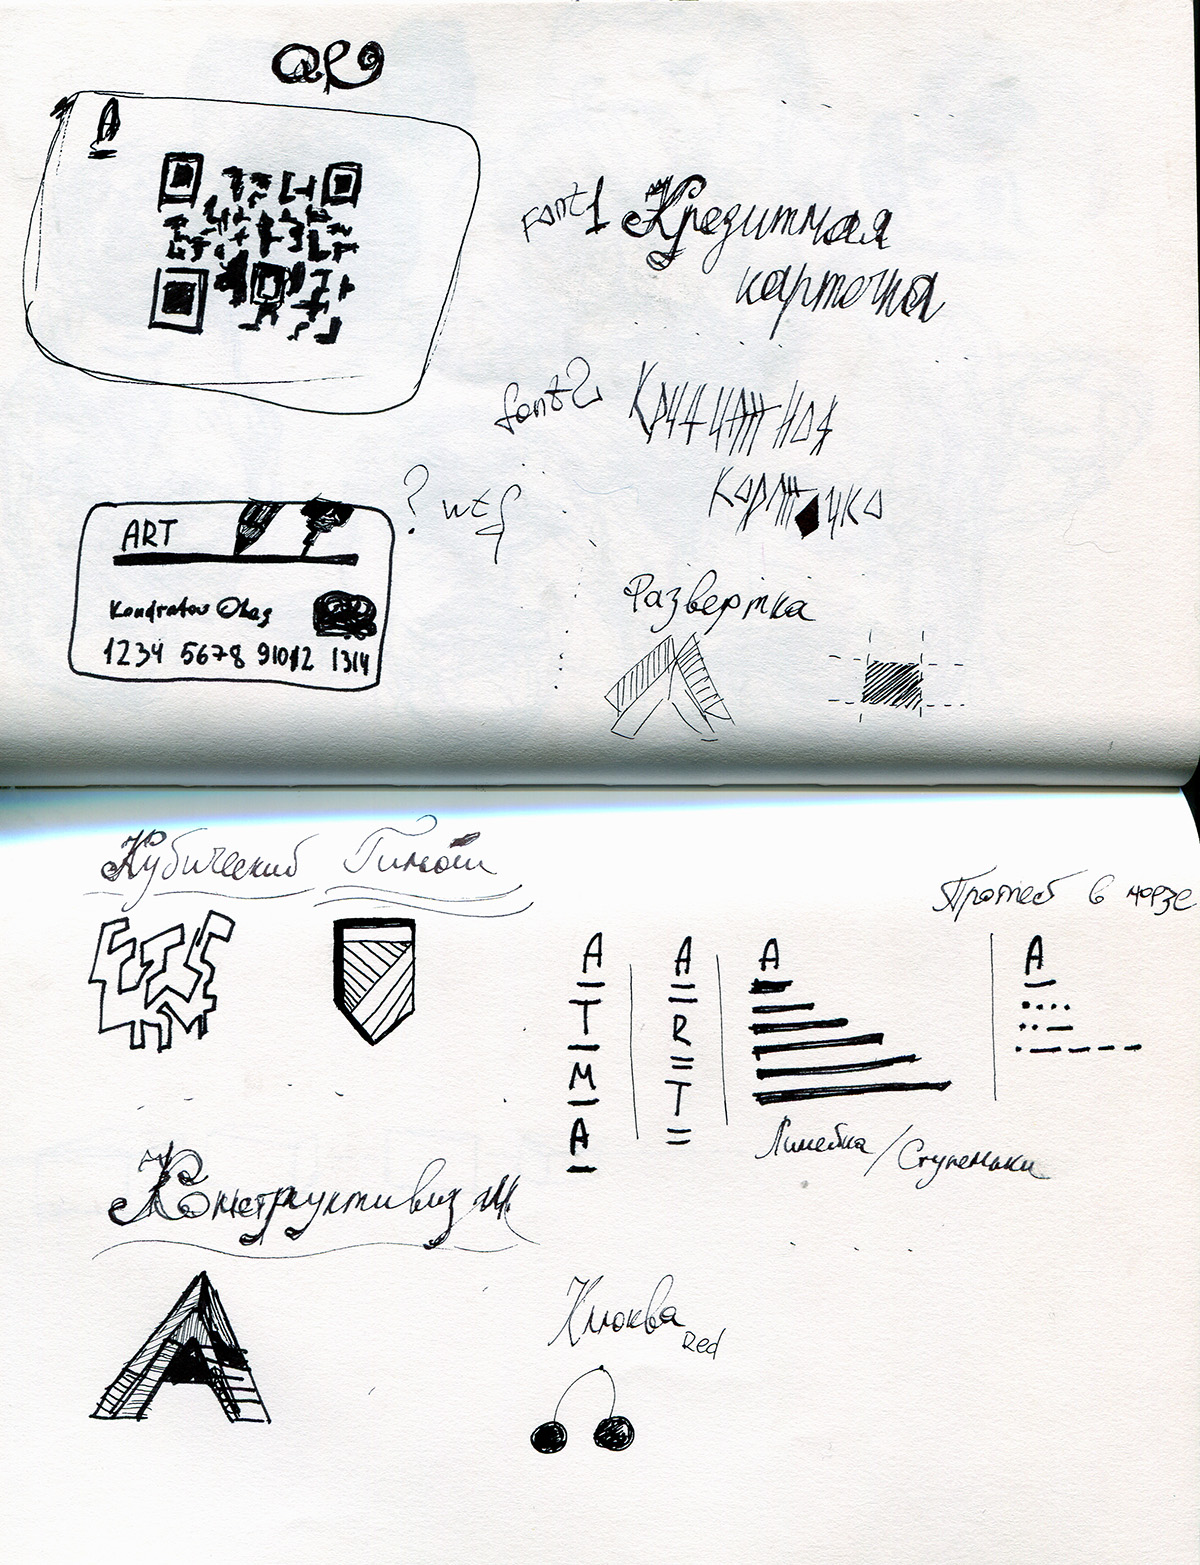 QR
A
Font 1 Кредитная
карточка
font 2
? wtf
ART
Kondratov Oleg
1234 5678 91012 1314
Развертка
Кубический
Протеб в морзе
A
T
M
A
A
R
T
A
A
Линейка / Ступеньки
Конструктивизм
Клюква
Red
A